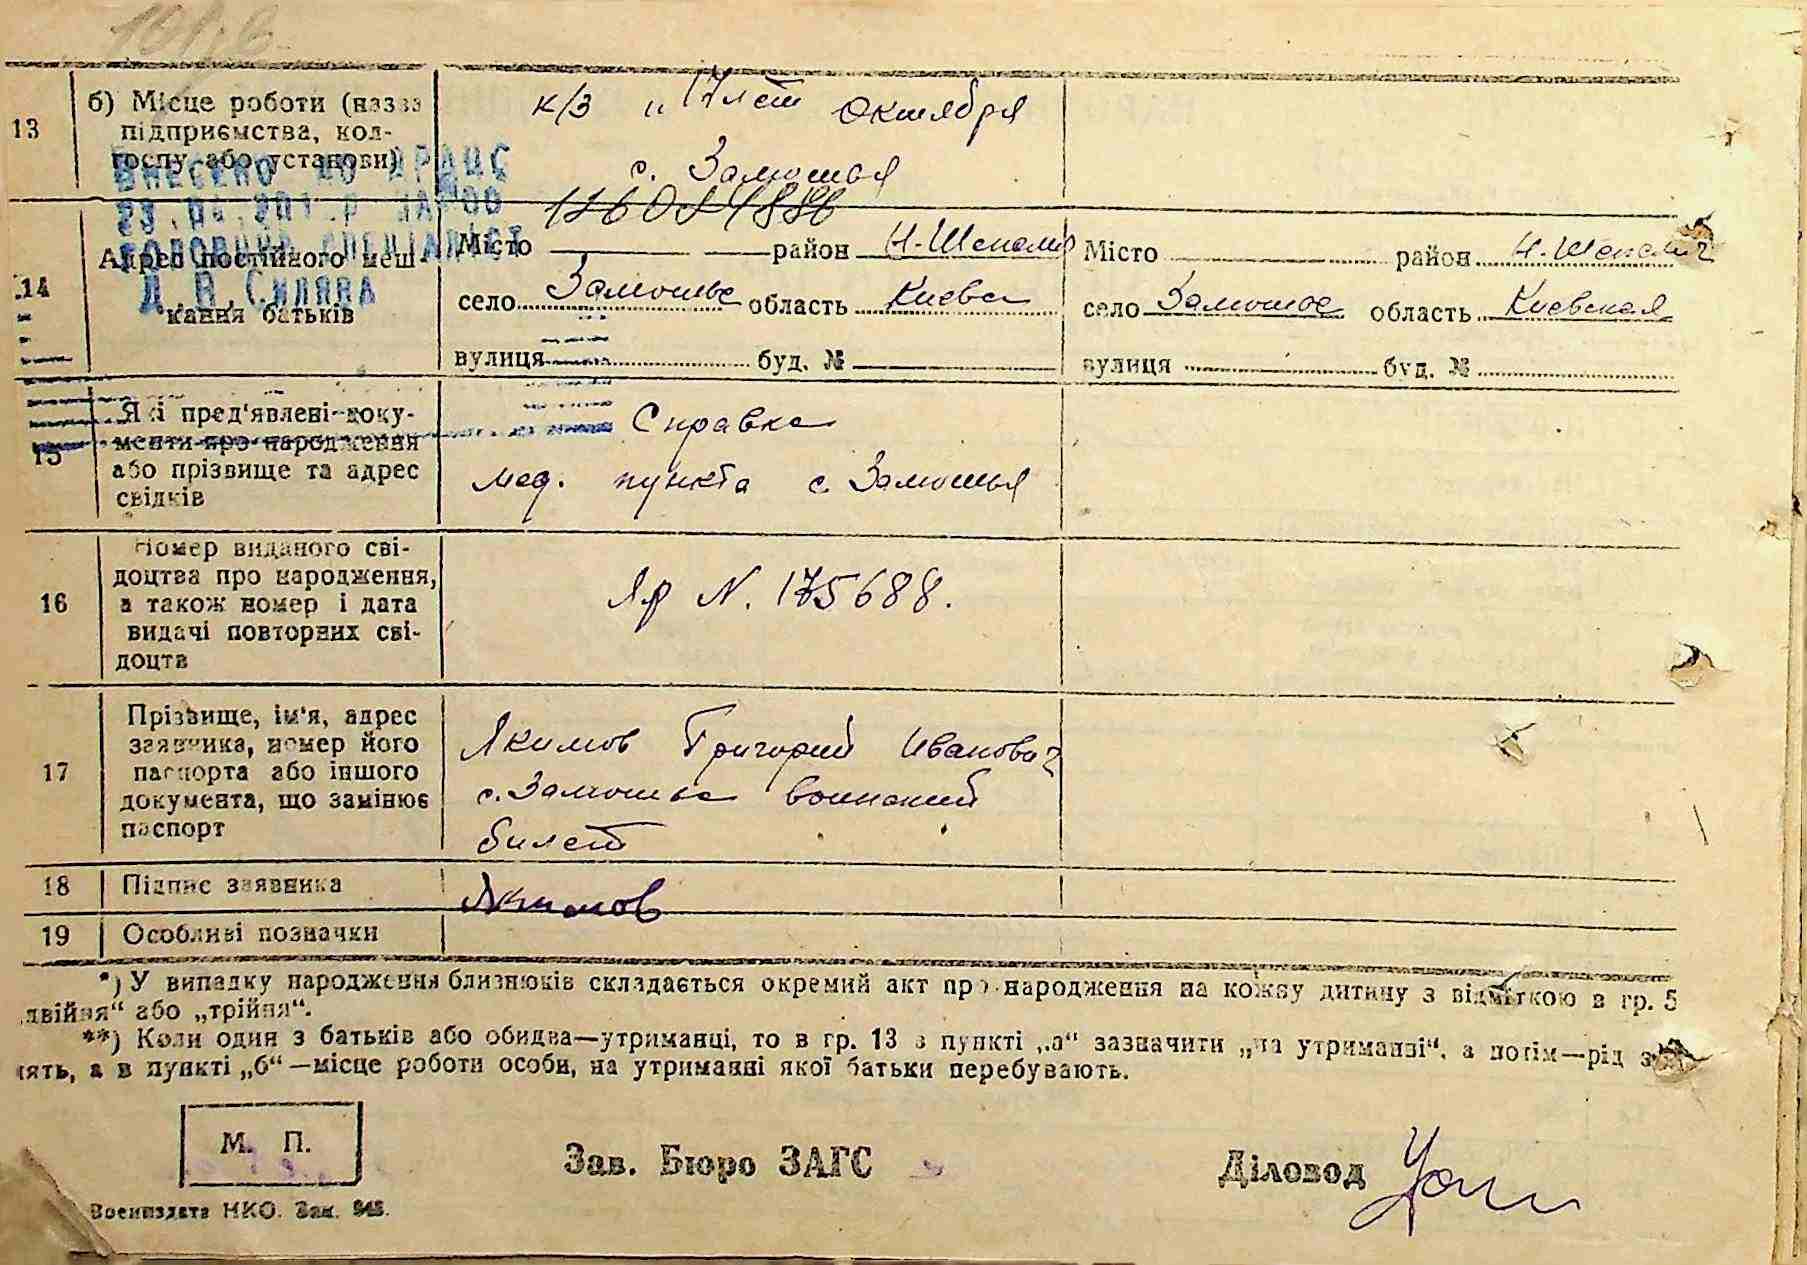 13
б) Місце роботи (назва
підприємства, кол-
госпу або установи)
к/з „17 лет Октября
с. Замошья
ВНЕСЕНО ДО ДРАЦС
ГОЛОВНИЙ СПЕЦІАЛІСТ
14
Адрес постійного меш-
кання батьків
Місто район Н-Шепелич
село Замошье область Киевс
вулиця буд. №
Місто район Н-Шепелич
село Замошье область Киевская
вулиця буд. №
15
Які пред'явлені доку-
менти про народження
або прізвище та адрес
свідків
Справка
мед. пункта с. Замошья
16
Номер виданого сві-
доцтва про народження,
а також номер і дата
видачі повторних сві-
доцтв
Яр N. 175688.
17
Прізвище, ім'я, адрес
заявника, номер його
паспорта або іншого
документа, що замінює
паспорт
Якимов Григорий Иванович
с. Замошье воинский
билет
18
Підпис заявника
Якимов
19
Особливі позначки
*) У випадку народження близнюків складається окремий акт про народження на кожну дитину з відміткою в гр. 5
„двійня“ або „трійня“.
**) Коли один з батьків або обидва—утриманці, то в гр. 13 в пункті „а“ зазначити „на утриманні“, а потім—рід за-
нять, а в пункті „б“—місце роботи особи, на утриманні якої батьки перебувають.
М. П.
Зав. Бюро ЗАГС
Діловод
Воениздата НКО. Зам. 945.